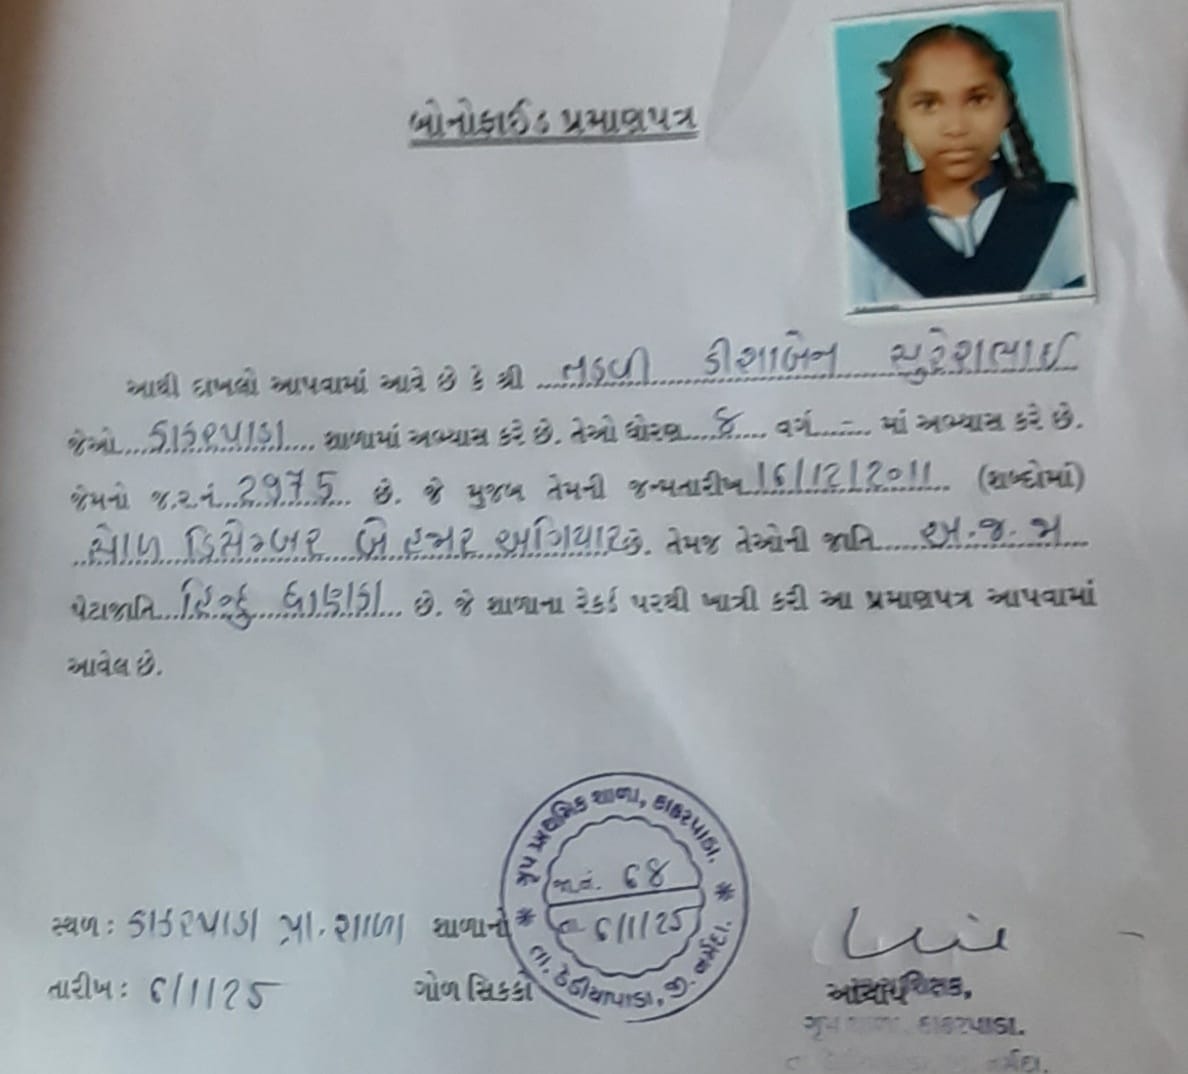 બોનોફાઈડ પ્રમાણપત્ર
આથી દાખલો આપવામાં આવે છે કે શ્રી તડવી ડીશાબેન સુરેશભાઈ
જેઓ કાકરપાડા શાળામાં અભ્યાસ કરે છે. તેઓ ધોરણ 8 વર્ગ - માં અભ્યાસ કરે છે.
જેમનો જ.ર.નં. 2975 છે. જે મુજબ તેમની જન્મતારીખ 16/12/2011 (શબ્દોમાં)
સોળ ડિસેમ્બર બે હજાર અગિયાર છે. તેમજ તેઓની જાતિ અ.જ.જા
પેટાજાતિ હિન્દુ ધાણકા છે. જે શાળાના રેકર્ડ પરથી ખાત્રી કરી આ પ્રમાણપત્ર આપવામાં
આવેલ છે.
ગૃપ પ્રાથમિક શાળા, કાકરપાડા.
જા.નં. 68
તા 6/1/25
તા. ડેડીયાપાડા, જી. નર્મદા.
સ્થળ: કાકરપાડા પ્રા. શાળા શાળાનો
તારીખ: 6/1/25 ગોળ સિક્કો
ગૃપ શાળા. કાકરપાડા.
નર્મદા.